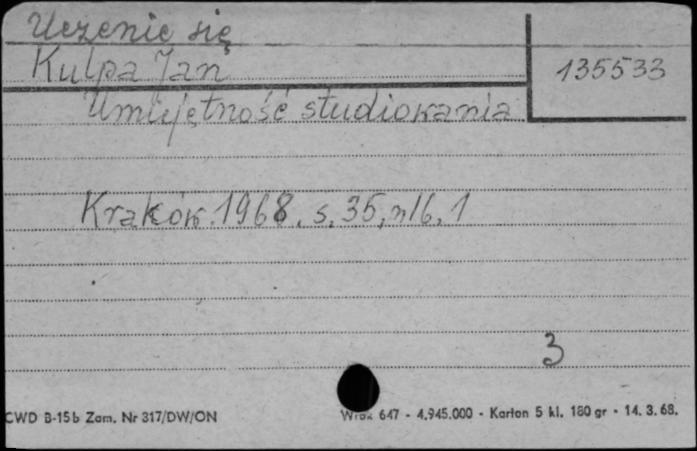 Uczenie się
Kulpa Jan
135533
Umiejętność studiowania
Kraków 1968, s. 35, nlb. 1
3
CWD B-15b Zam. Nr 317/DW/ON
647 - 4.945.000 - Karton 5 kl. 180 gr - 14. 3. 68.